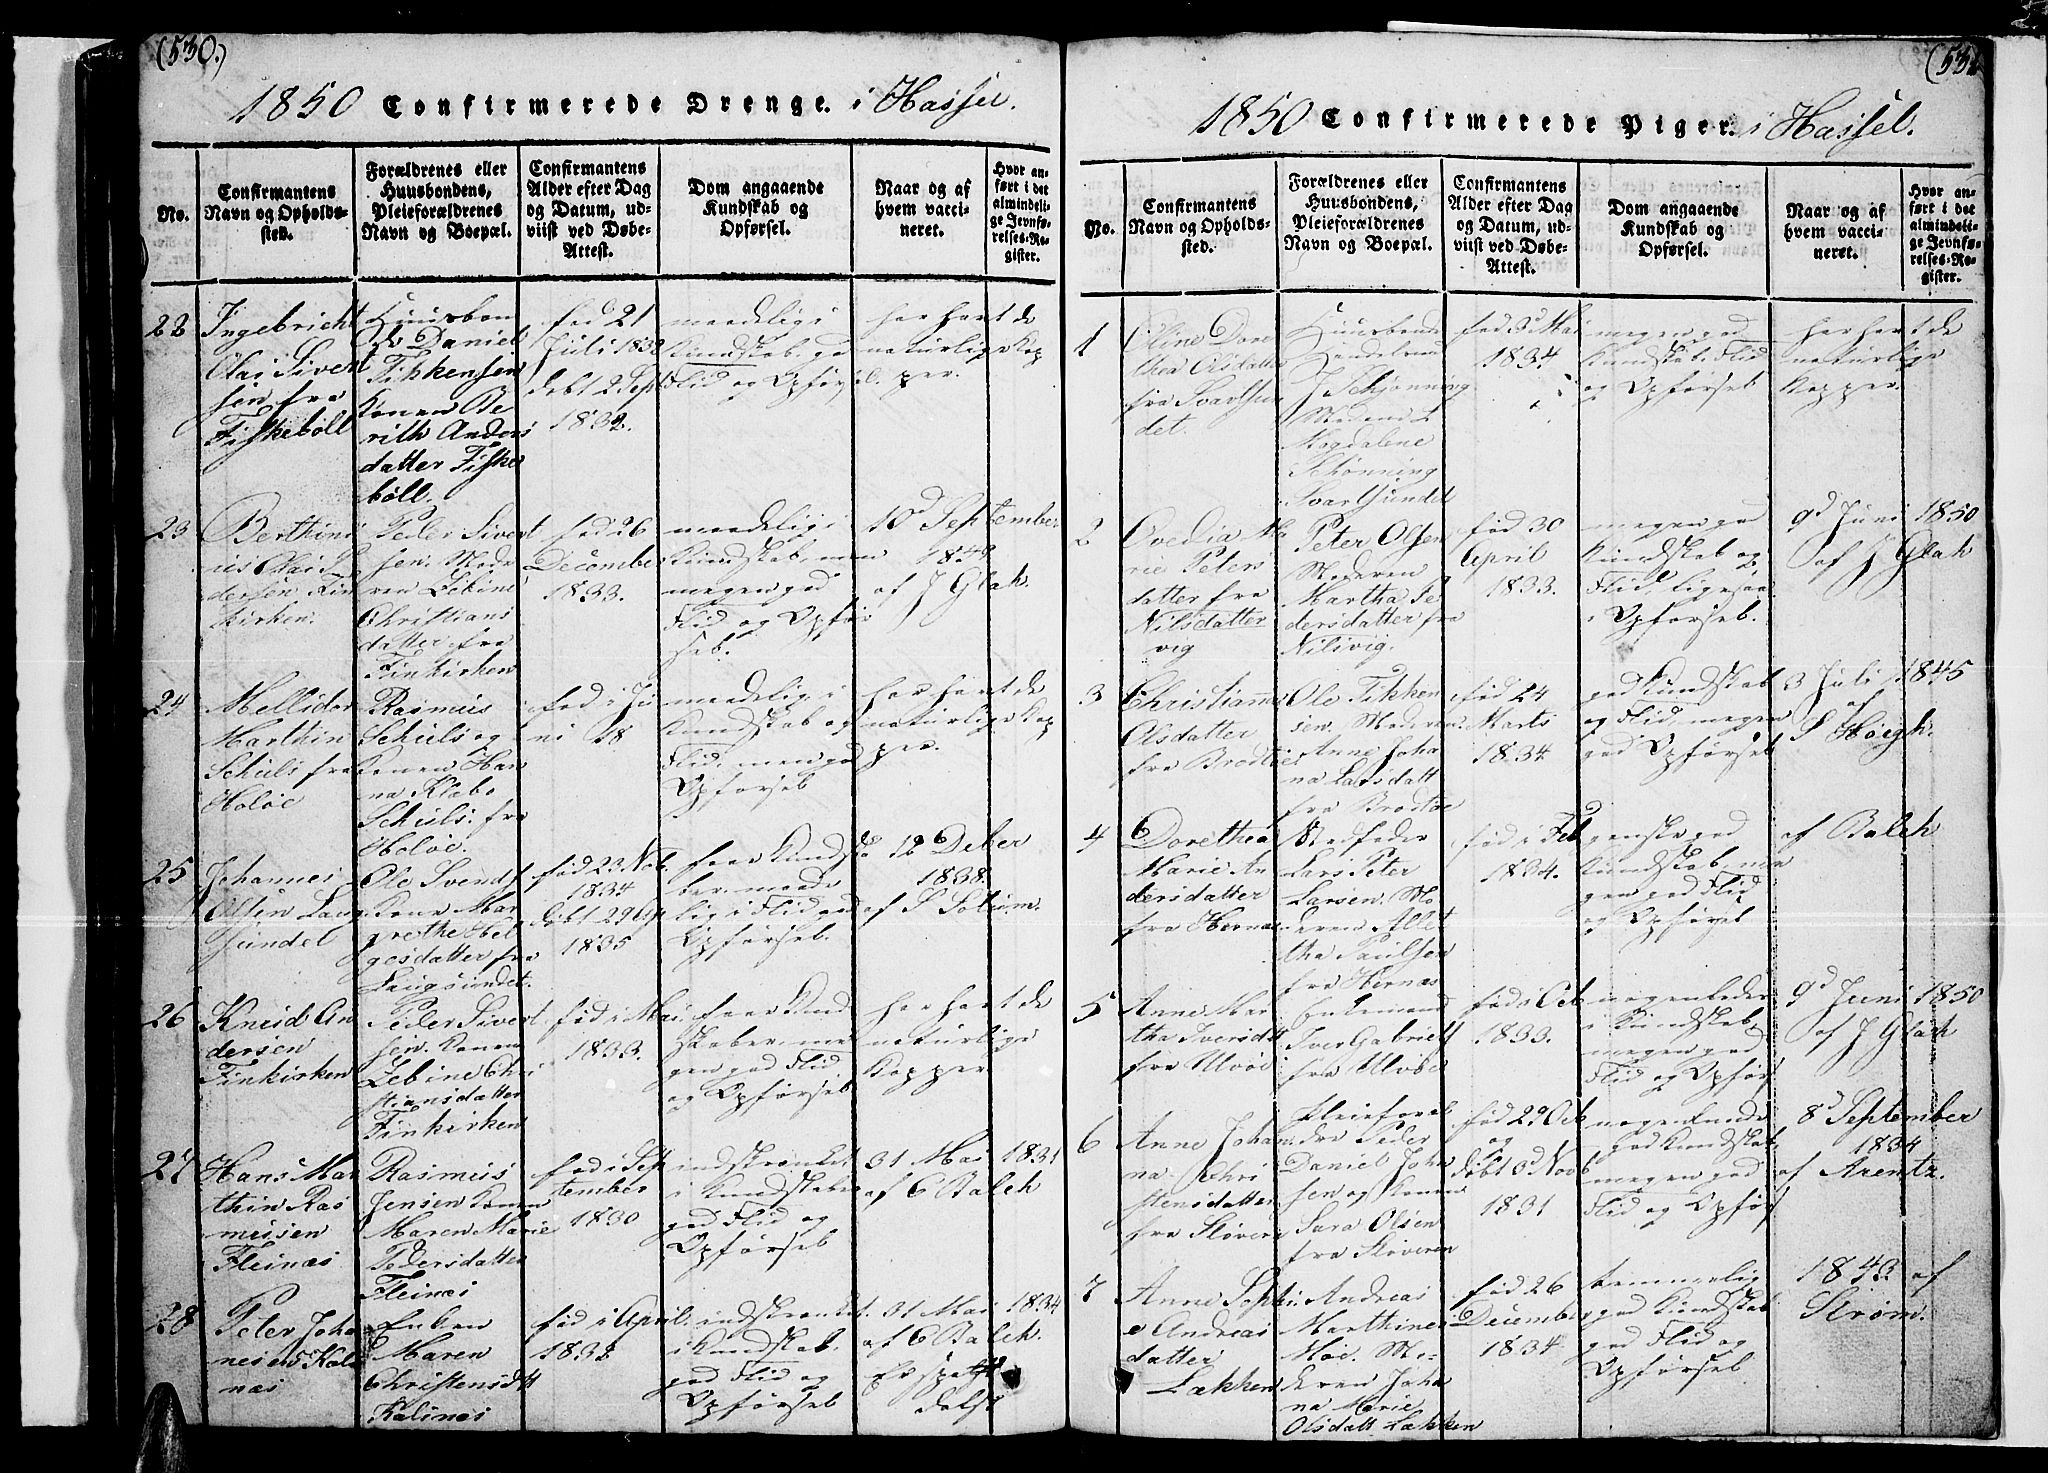 (530.)
1850 Confirmerede Drenge. i Hassel.
No.
Confirmantens
Navn og Opholds-
sted.
Forældrenes eller
Huusbondens,
Pleieforældrenes
Navn og Boepæl.
Confirmantens
Alder efter Dag
og Datum, ud-
viist ved Døbe-
Attest.
Dom angaaende
Kundskab og
Opførsel.
Naar og af
hvem vacci-
neret.
Hvor an-
ført i det
almindeli-
ge Jevnfø-
relses-Re-
gister.
22
Ingebricht
Olai Sivert
sen fra
Fiskebøll
Huusbon
de Daniel
Tikkensen
Konen Be
rith Anders
datter Fiske
bøll.
fød 21
Juli 1832
døbt 2 Sept
1832.
maadelig i
Kundskab, god
Flid og Opførsel.
har havt de
naturlige Kop
per.
23
Berthini
us Olai P
dersen Fin
kirken.
Peder Sivert
sen. Mode
ren Zebine
Christians
datter fra
Finkirken
fød 26
December
1833.
maadelig i
Kundskab, men
megen god
Flid og Opfør
sel.
10d September
1849
af J Glah.
24
Mellidor
Marthin
Schuls fra
Holøe
Rasmus
Schuls og
Konen Han
na Klæbo
Schuls. fra
Holøe.
fød i Ju
ni 18
maadelig i
Kundskab og
Flid, men god
Opførsel
har havt de
naturlige Kop
per.
25
Johannes
Olsen Laug
sundet
Ole Svends
Kone Mar
grethe Hel
gesdatter fra
Laugsundet.
fød 23 Nob.
1834
døbt 29 Ap
1835
faae Kundska
ber, maade
lig i Flid, god
Opførsel.
12 Deber
1838.
af S Solum.
26
Knud An
dersen
Finkirken
Peder Sivert
sen. Konen
Zebine Chri
stiansdatter
Finkirken
fød i Mai
1833.
faae Kund
skaber, me
gen god Flid
og Opførsel
har havt de
naturlige
Kopper
27
Hans Mar
thin Ras
mussen
Fleinæs
Rasmus
Jensen Konen
Maren Marie
Pedersdatter
Fleinæs
fød i Sep
tember
1830
indskrænket
i Kundskaber
god Flid og
Opførsel
31 Mai 1831
af C Balch
28
Peter Joha
nesen Kal
næs
Enken
Maren
Christensdtt
Kalinæs
fød i April
1832
indskrænket
i Kundskab.
god Flid og
Opførsel
31 Mai 1834
af C Balch
(531
1850 Confirmerede Piger. i Hassel.
No.
Confirmantens
Navn og Opholds-
sted.
Forældrenes eller
Huusbondens,
Pleieforældrenes
Navn og Boepæl.
Confirmantens
Alder efter Dag
og Datum, ud-
viist ved Døbe-
Attest.
Dom angaaende
Kundskab og
Opførsel.
Naar og af
hvem vacci-
neret.
Hvor an-
ført i det
almindeli-
ge Jevnfø-
relses-Re-
gister.
1
Oline Doro
thea Olsdatter
fra Svartsun
det.
Huusbonde
Handelsmd
J Schjønning
Madame
Magdalene
Schønning
Svartsundet
fød 3d Mai
1834
megen god
Kundskab, Flid
og Opførsel
har havt de
naturlige
Kopper.
2
Ovedia Ma
rie Peters
datter fra
Nilsdatter
vig
Peter Olsen
Moderen
Martha Pe
dersdatter fra
Nilsvig.
fød 30
April
1833.
megen god
Kundskab og
Flid, ligesaa
i Opførsel.
9d Juni 1850
af J Glah
3
Christianne
Olsdatter
fra Brodtøe
Ole Tikken
sen. Moderen
Anne Joha
na Larsdatt
fra Brodtøe
fød 24
Marts
1834
god Kundskab
og Flid, megen
god Opførsel
3 Juli 1845
af
S Høegh.
4
Dorethea
Marie An
dersdatter
fra Hernæs
Stedfader
Lars Peter
Larsen. Mo
deren Alet
tha Paulsen
fra Hernæs
fød i Feb
1834.
ganske god
Kundskab, me
gen god Flid
og Opførsel
af Balch
5
Anne Mar
tha Iversdtt
fra Ulvøe
Enkemand
Iver Gabriels
fra Ulvøe
fød i Oct
1833.
nogenledes
i Kundskab,
megen god
Flid og Opførs
9d Juni 1850
af J Glah
6
Anne Johan
na Chri
stensdatter
fra Sløveren
Pleieforæl
dre Peder
Daniel John
sen og Konen
Sara Olsen
fra Sløveren
fød 29 Oct
og
døbt 3d Novb
1831
nogenlunde
god Kundskab,
megen god
Flid og Opførs
8d September
1834
af Arentz.
7
Anne Sophi
e Andreas
datter
Løkken
Andreas
Marthines
Moe. Mo-
deren Joha
na Marie
Olsdatt Løkken
fød 26
December
1834
temmelig
god Kundskab
god Flid og
Opførsel.
1843 af
Strøm.